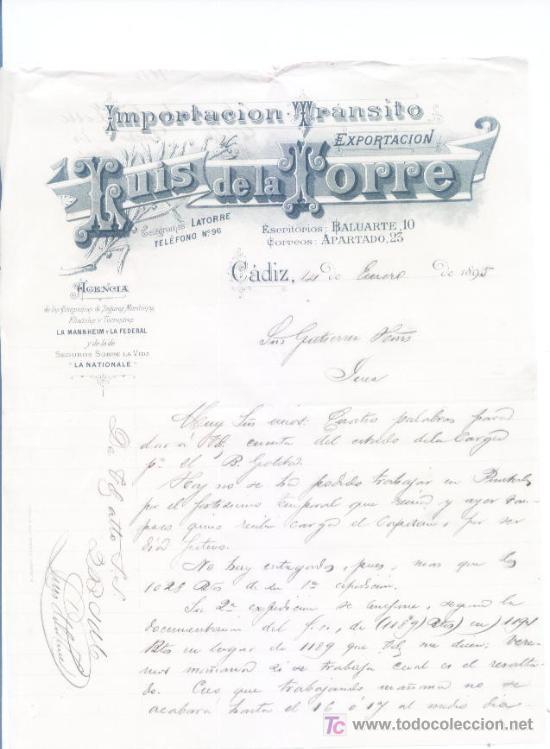 Importacion Tránsito
Exportacion
Luis de la Torre
Telegramas LATORRE
TELÉFONO Nº 96
Escritorios: BALUARTE, 10
Correos: APARTADO, 25
Cádiz, 14 de Enero de 1895
AGENCIA
de las Compañias de Seguros Maritimos
Fluviales y Terrestres
LA MANNHEIM Y LA FEDERAL
y de la de
SEGUROS SOBRE LA VIDA
"LA NATIONALE"
Gutierrez
Jerez
Muy Sres mios: Cuatro palabras para
dar á Vds. cuenta del estado de la carga
pª el B.
Hoy no se há podido trabajar en
por el temporal que y ayer tam-
poco quiso recibir carga el Capitan, por ser
dia festivo.
No hay entregados, pues, mas que los
1028 de su 1ª expedicion.
Su 2ª expedicion se compone, segun la
documentacion del f. c., de (1189) 1191
en lugar de 1189 que Vds. me dicen; vere-
mos mañana si se trabaja cual es el resulta-
do. Creo que trabajando mañana no se
acabará hasta el 16 ó 17 al medio dia
De Vds. atto S.S.
Q.B.S.M.
Luis de la Torre
TC
www.todocoleccion.net